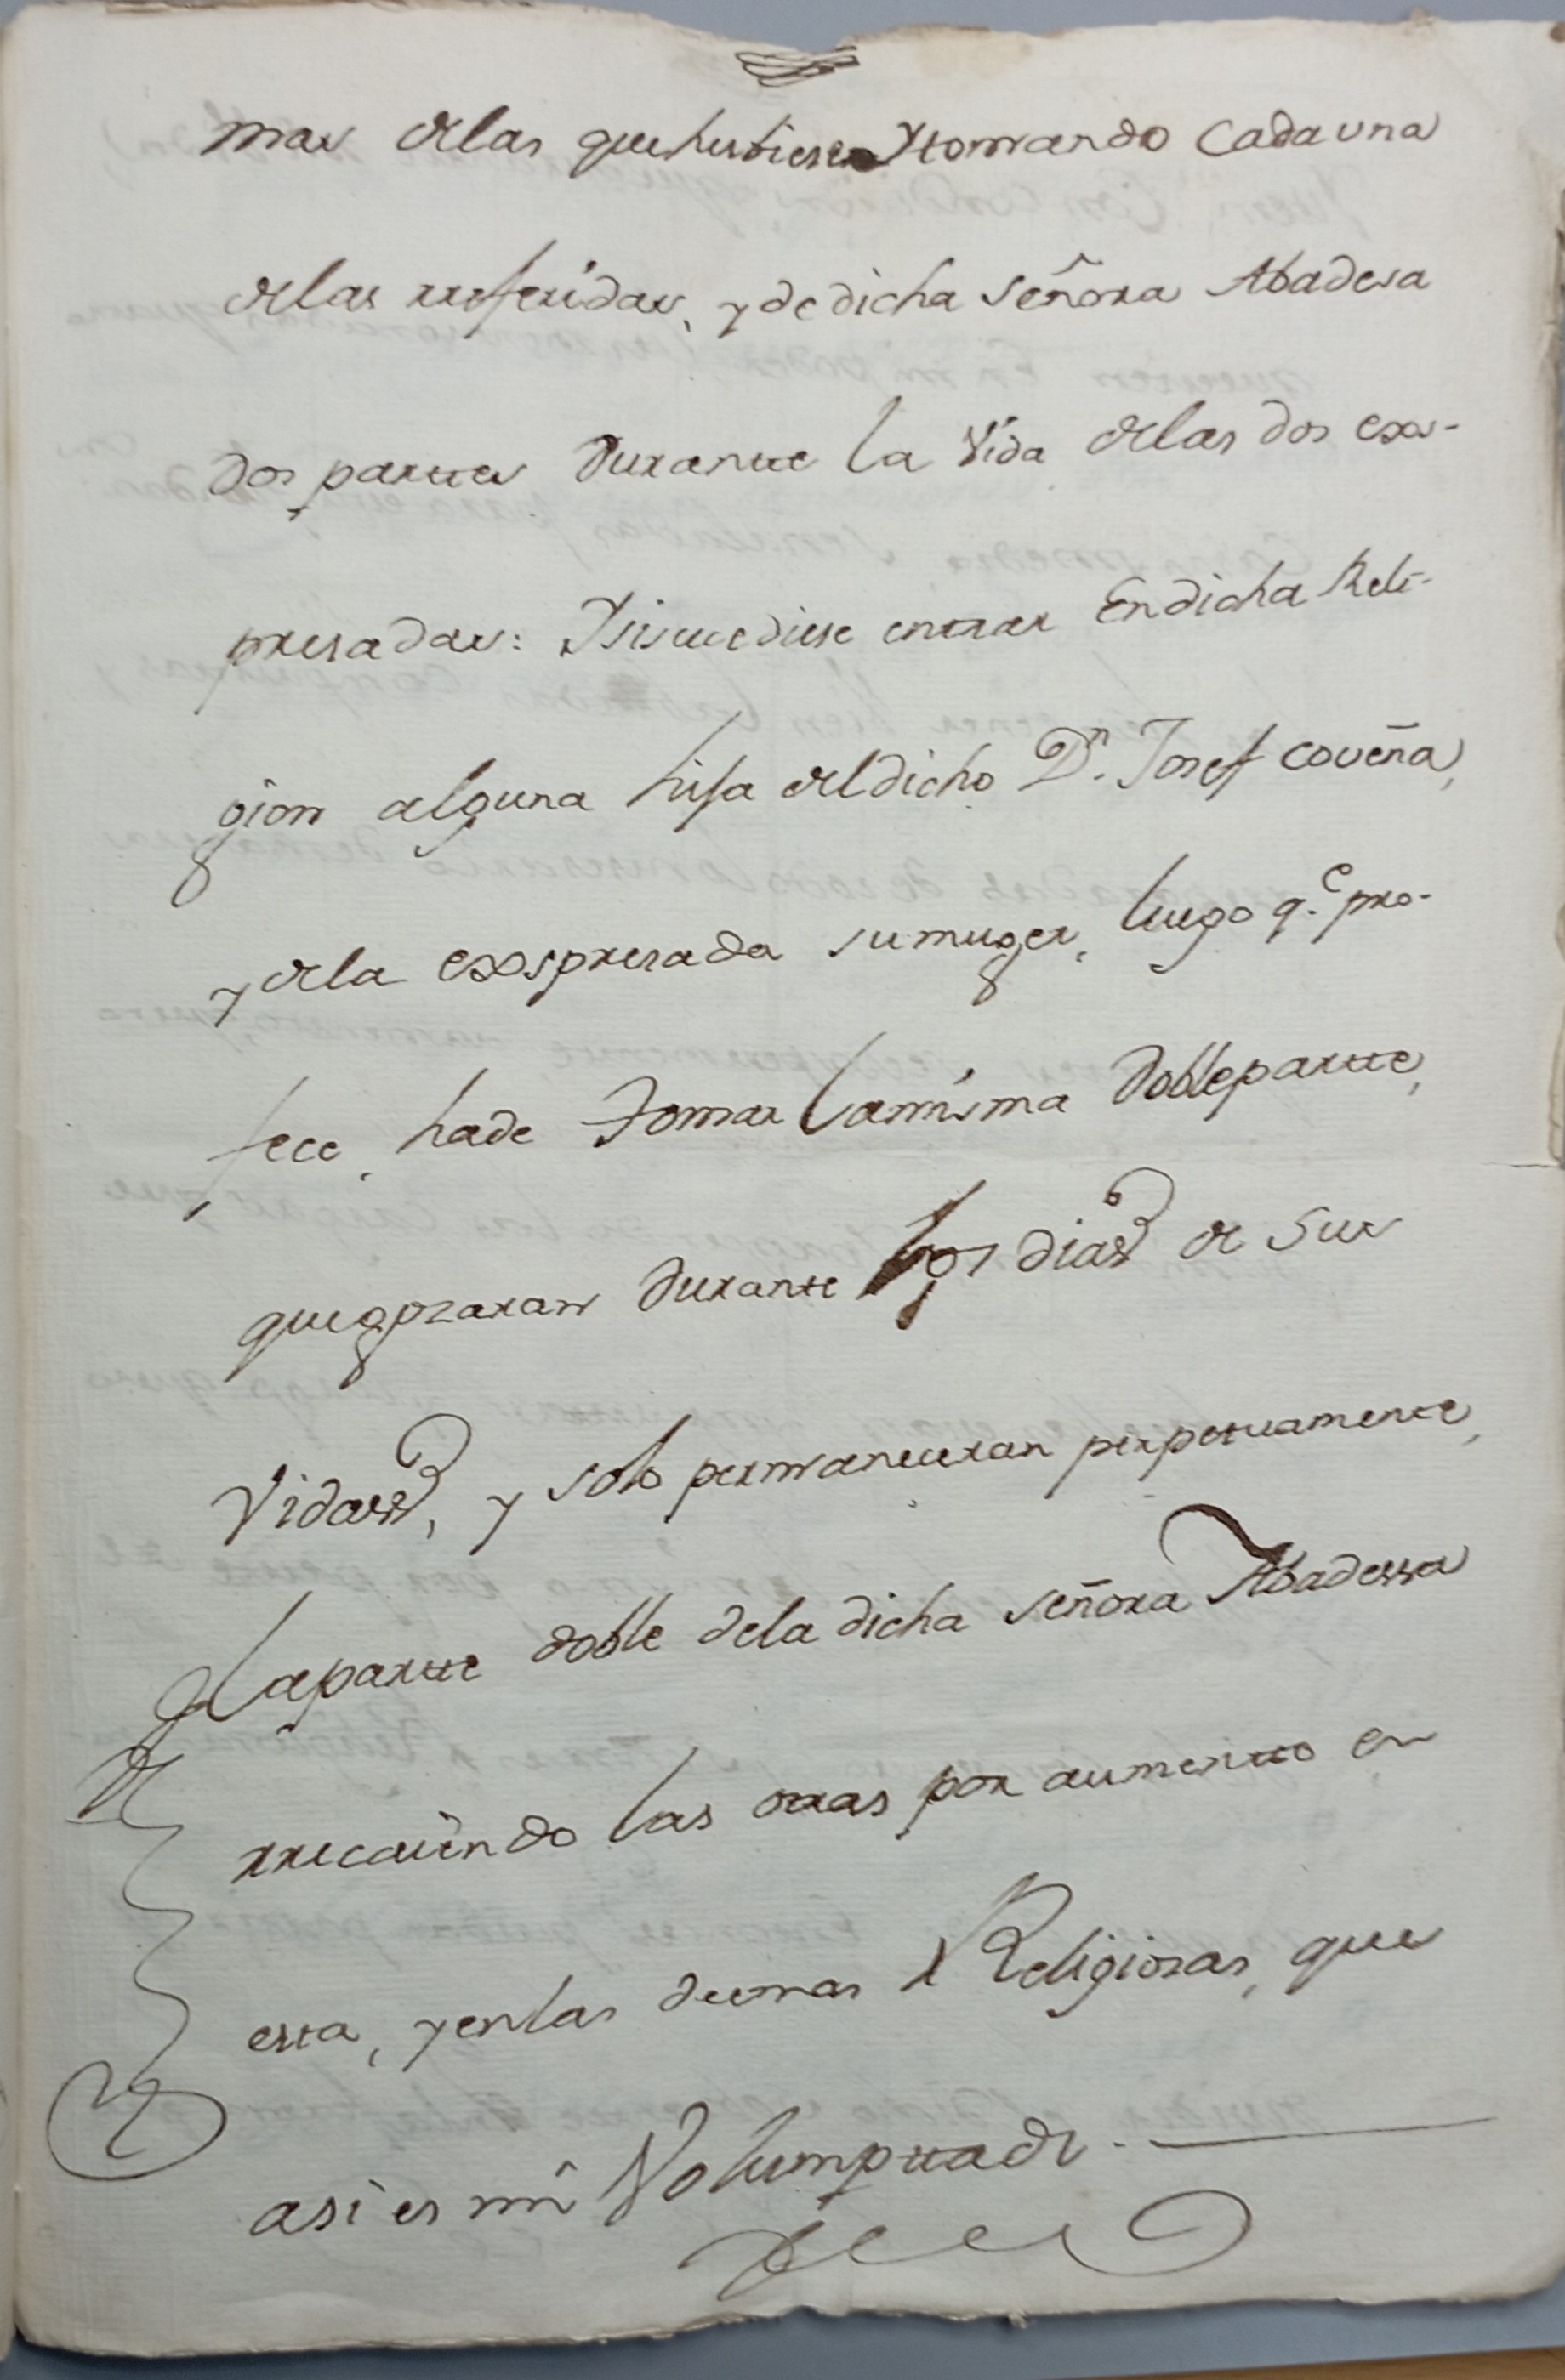 mas de las que hubiese Ytomando Cada una
de las rreferidas, y de dicha señora Abadesa
dos parttes Durantte la Vida de las dos exs-
presadas: Ysisucediese entrar En dicha Reli-
gion alguna hija del dicho Dn. Josef coveña,
y de la exspresada su muger, luego q.e pro-
fece, hade tomar la misma Doble partte,
que gozaran Durante los dias de sus
Vidas, y solo permaneceran perpetuamente,
la partte doble de la dicha señora Abadessa
rrecaiendo las otras por aumentto en
esta, y en las demas Religiosas, que
asi es mi Volumpttad.